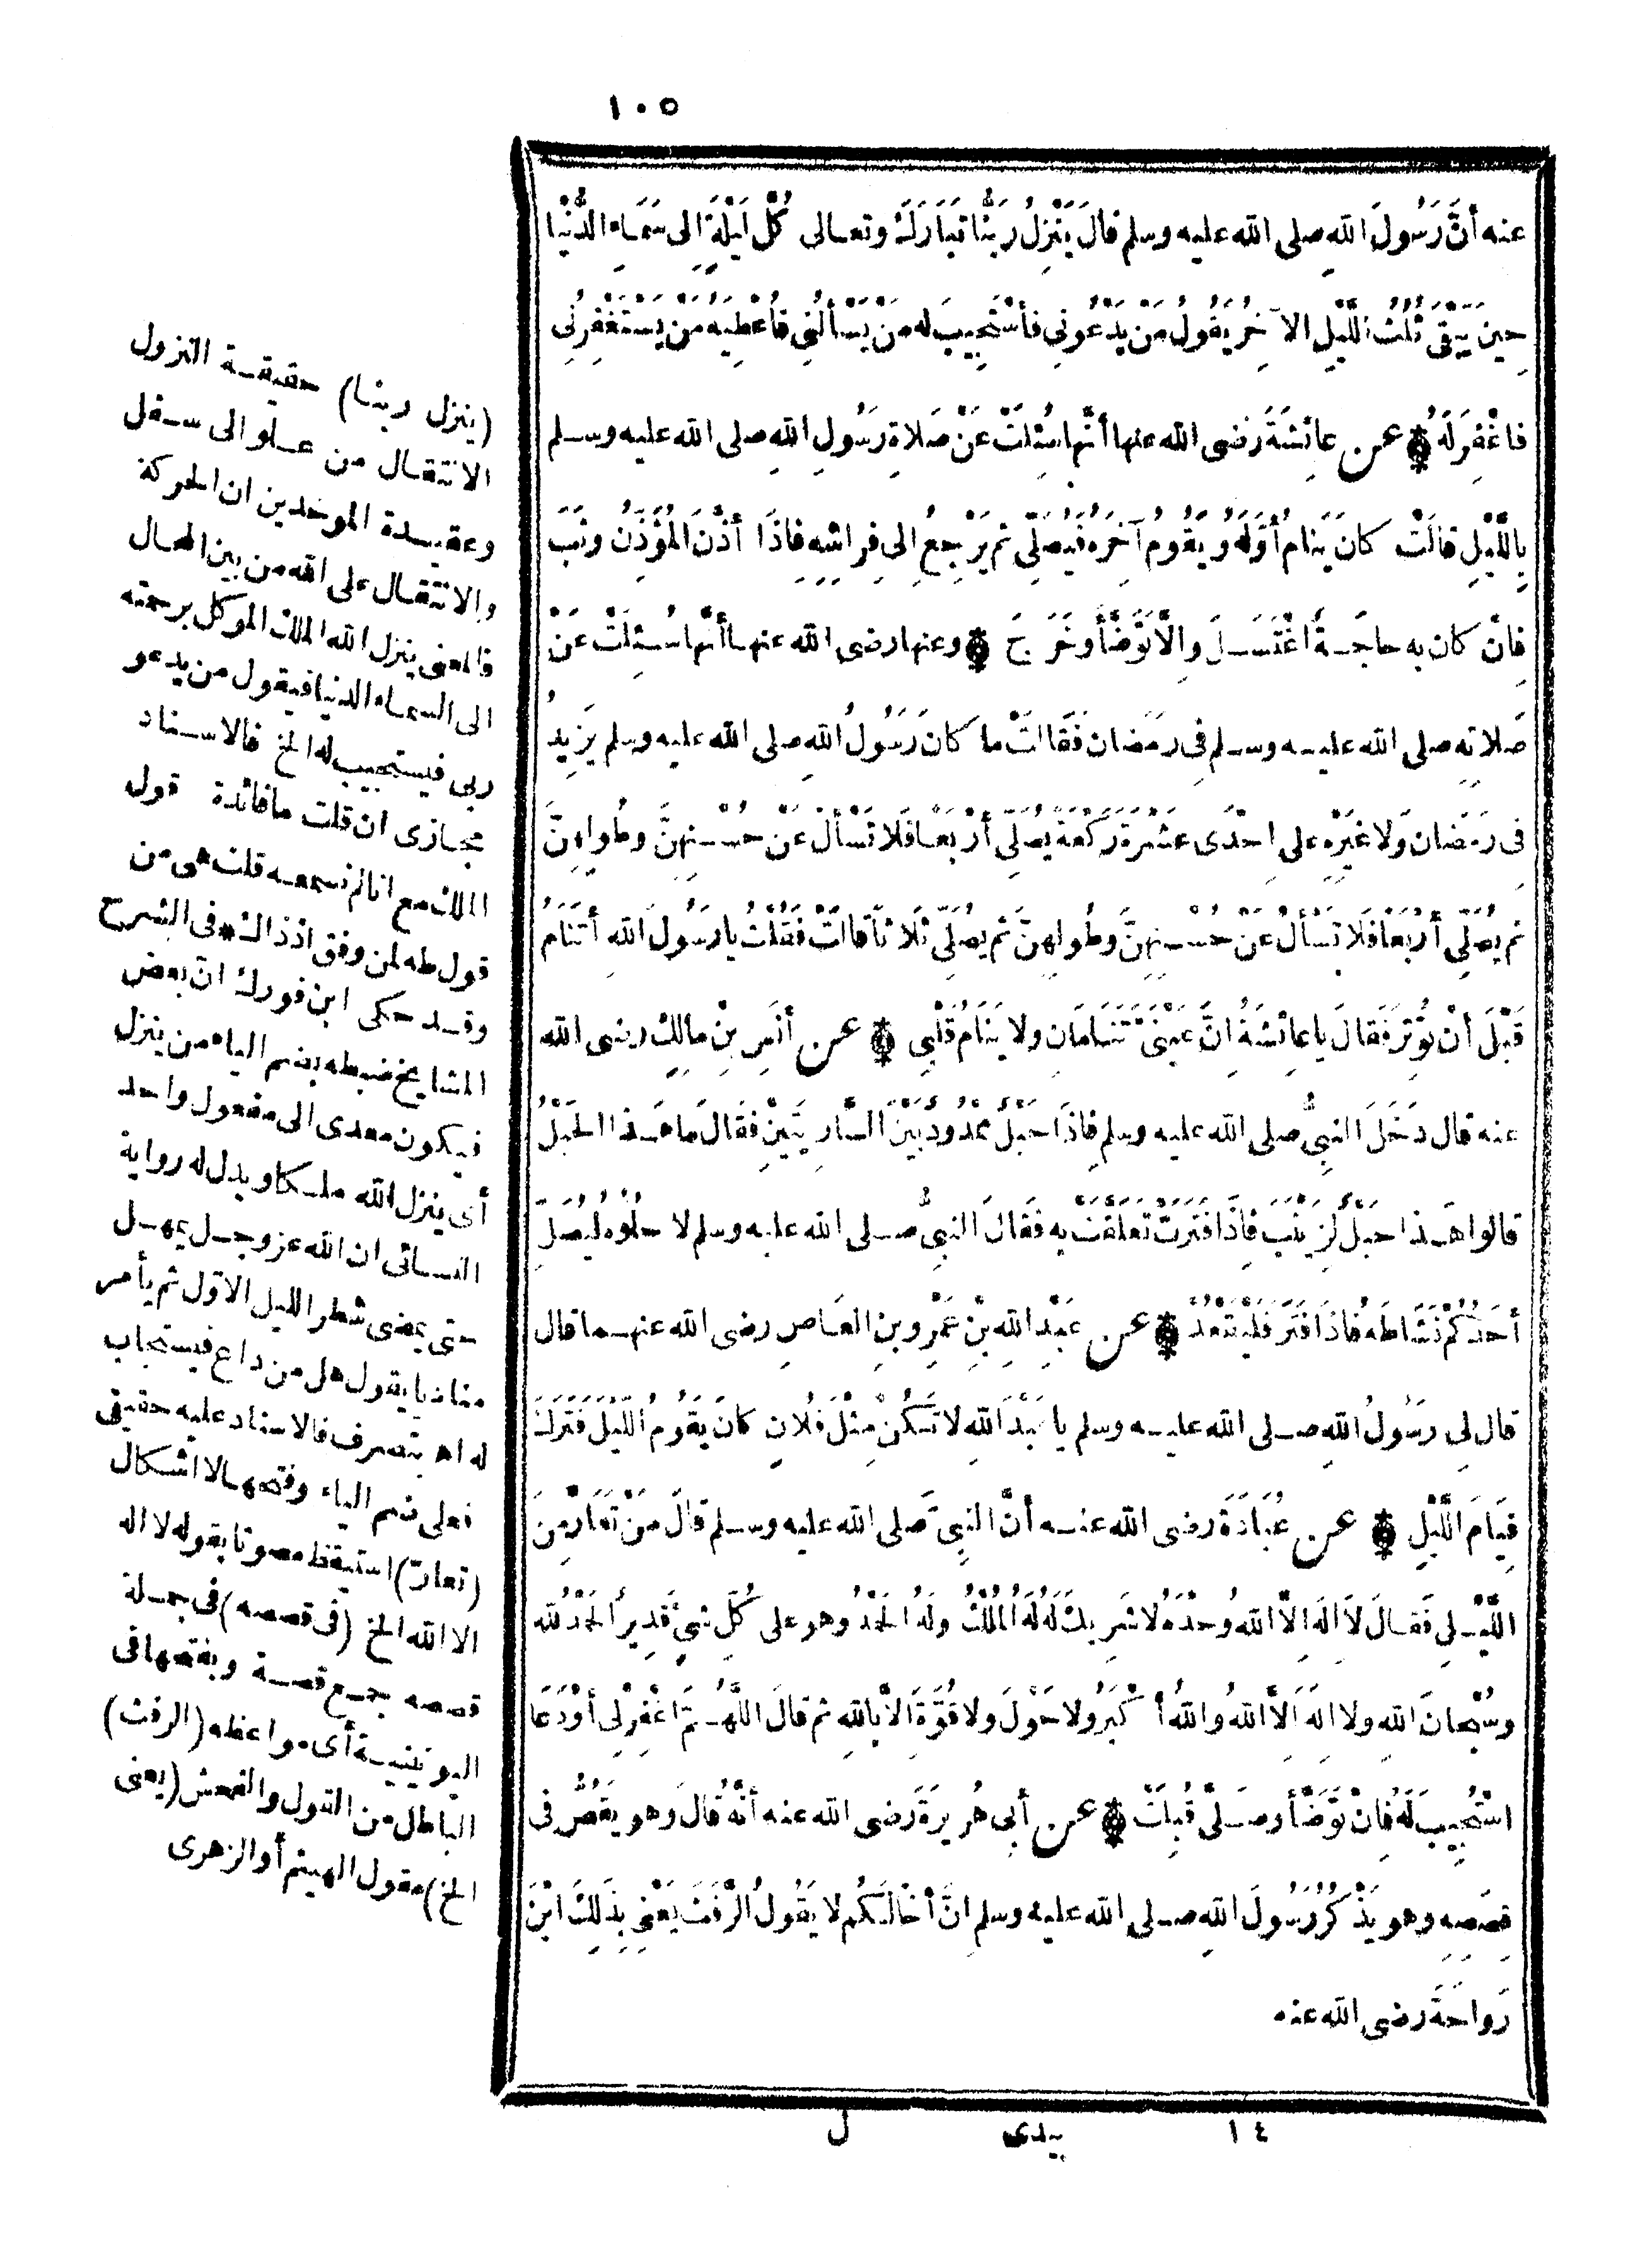 ١٠٥
عنه أنَّ رَسُولَ اللهِ صلى الله عليه وسلم قالَ يَنْزِلُ رَبُّنَا تَبَارَكَ وتعالى كُلَّ لَيْلَةٍ إلى سَمَاءِ الدُّنْيَا
حِينَ يَبْقَى ثُلُثُ اللَّيْلِ الآخِرُ يَقُولُ مَنْ يَدْعُونِي فأسْتَجِيبَ له مَنْ يَسْألُنِي فأُعْطِيَهُ مَنْ يَسْتَغْفِرُنِي
فاغْفِرَ لَهُ عن عائِشَةَ رَضى الله عنها أنَّها سُئِلَتْ عَنْ صَلاةِ رَسُولِ اللهِ صلى الله عليه وسلم
بِاللَّيْلِ قالَتْ كانَ يَنامُ أوَّلَهُ ويَقُومُ آخِرَهُ فَيُصَلِّى ثم يَرْجِعُ إلى فِراشِهِ فإذَا أذَّنَ المُؤَذِّنُ وثَبَ
فإنْ كان بِهِ حاجَةٌ اغْتَسَلَ وإلَّا تَوَضَّأَ وخَرَجَ وعنها رضى الله عنها أنَّها سُئِلَتْ عَنْ
صَلاتِهِ صلى الله عليه وسلم فى رمَضان فَقَالَتْ ما كانَ رَسُولُ اللهِ صلى الله عليه وسلم يَزِيدُ
فى رَمَضان وَلا غَيْرِهِ على إحْدَى عَشْرَةَ رَكْعَةً يُصَلِّى أرْبَعًا فَلا تَسْألْ عَنْ حُسْنِهِنَّ وطُولِهِنَّ
ثم يُصَلِّى أرْبَعًا فَلا تَسْألْ عَنْ حُسْنِهِنَّ وطُولِهِنَّ ثم يُصَلِّى ثَلاثًا قالَتْ فَقُلْتُ يا رَسُولَ اللهِ أتَنَامُ
قَبْلَ أنْ تُوتِرَ فَقالَ يا عائِشَةُ إنَّ عَيْنَىَّ تَنَامَان ولا يَنَامُ قَلْبِى عن أنَسِ بْنِ مالِكٍ رضى الله
عنه قال دَخَلَ النبيُّ صلى الله عليه وسلم فإذَا حَبْلٌ مَمْدُودٌ بَيْنَ السَّارِيَتَيْنِ فقَالَ مَا هَذا الحَبْلُ
قالوا هَذا حَبْلٌ لِزَيْنَبَ فإذَا فَتَرَتْ تَعَلَّقَتْ بِهِ فَقَالَ النبيُّ صلى الله عليه وسلم لا حُلُّوهُ لِيُصَلِّ
أحَدُكُمْ نَشَاطَهُ فإذَا فَتَرَ فَلْيَقْعُدْ عن عَبْدِ اللهِ بْنِ عَمْرِو بنِ العَاصِ رضى الله عنهما قال
قال لى رَسُولُ اللهِ صلى الله عليه وسلم يا عَبْدَ اللهِ لا تَكُنْ مِثْلَ فُلانٍ كانَ يَقُومُ اللَّيْلَ فَتَرَكَ
قِيَامَ اللَّيْلِ عن عُبَادَةَ رضى الله عنه أنَّ النبىَّ صَلى الله عليه وسلم قالَ مَنْ تَعَارَّ مِنَ
اللَّيْلِ فَقالَ لَا إلَهَ إلَّا اللهُ وحْدَهُ لا شَرِيكَ لَهُ لَهُ المُلْكُ ولَهُ الحَمْدُ وهو على كُلِّ شَىْءٍ قَدِيرٌ الحَمْدُ لله
وسُبْحانَ اللهِ ولا إلَهَ إلَّا اللهُ واللهُ أكْبَرُ ولا حَوْلَ ولا قُوَّةَ إلَّا بِاللهِ ثم قالَ اللَّهُمَّ اغْفِرْ لِى أوْ دَعَا
اسْتُجِيبَ لَهُ فإنْ تَوَضَّأَ وصَلَّى قُبِلَتْ عن أبى هُرَيْرَةَ رَضى الله عنه أنَّهُ قالَ وهو يَقُصُّ فى
قِصَصِهِ وهو يَذْكُرُ رَسُولَ اللهِ صلى الله عليه وسلم إنَّ أخًا لَكُم لا يَقُولُ الرَّفَثَ يَعْنِى بِذَلِكَ ابْنَ
رَواحَةَ رضى الله عنه
(ينزل ربنا) حقيقة النزول
الانتقال من علو الى سفل
وعقيدة الموحدين ان الحركة
والانتقال على الله من بين المحال
فالمعنى ينزل الله الملك الموكل برحمته
الى السماء الدنيا فيقول من يدعو
ربى فيستجيب له الخ فالاسناد
مجازى ان قلت ما فائدة قول
الملك مع انا لم نسمعه قلت هى من
قول طه لمن وفق اذ ذاك فى الشرح
وقد حكى ابن فورك ان بعض
المشايخ ضبطه بضم الياء من ينزل
فيكون معدى الى مفعول واحد
أى ينزل الله ملكا ويدل له رواية
النسائى ان الله عز وجل يمهل
حتى يمضى شطر الليل الاول ثم يأمر
مناديا يقول هل من داع فيستجاب
له اه بتصرف فالاسناد عليه حقيقى
فعلى ضم الياء وفتحها لا اشكال
(تعارّ) استيقظ مصوتا بقوله لا اله
الا الله الخ (فى قصصه) فى جملة
قصصه جمع قصة وبفتحها فى
اليونينية أى مواعظه (الرفث)
الباطل من القول والفحش (يعنى
الخ) مقول الهيثم أو الزهرى
١٤ زبيدى ل